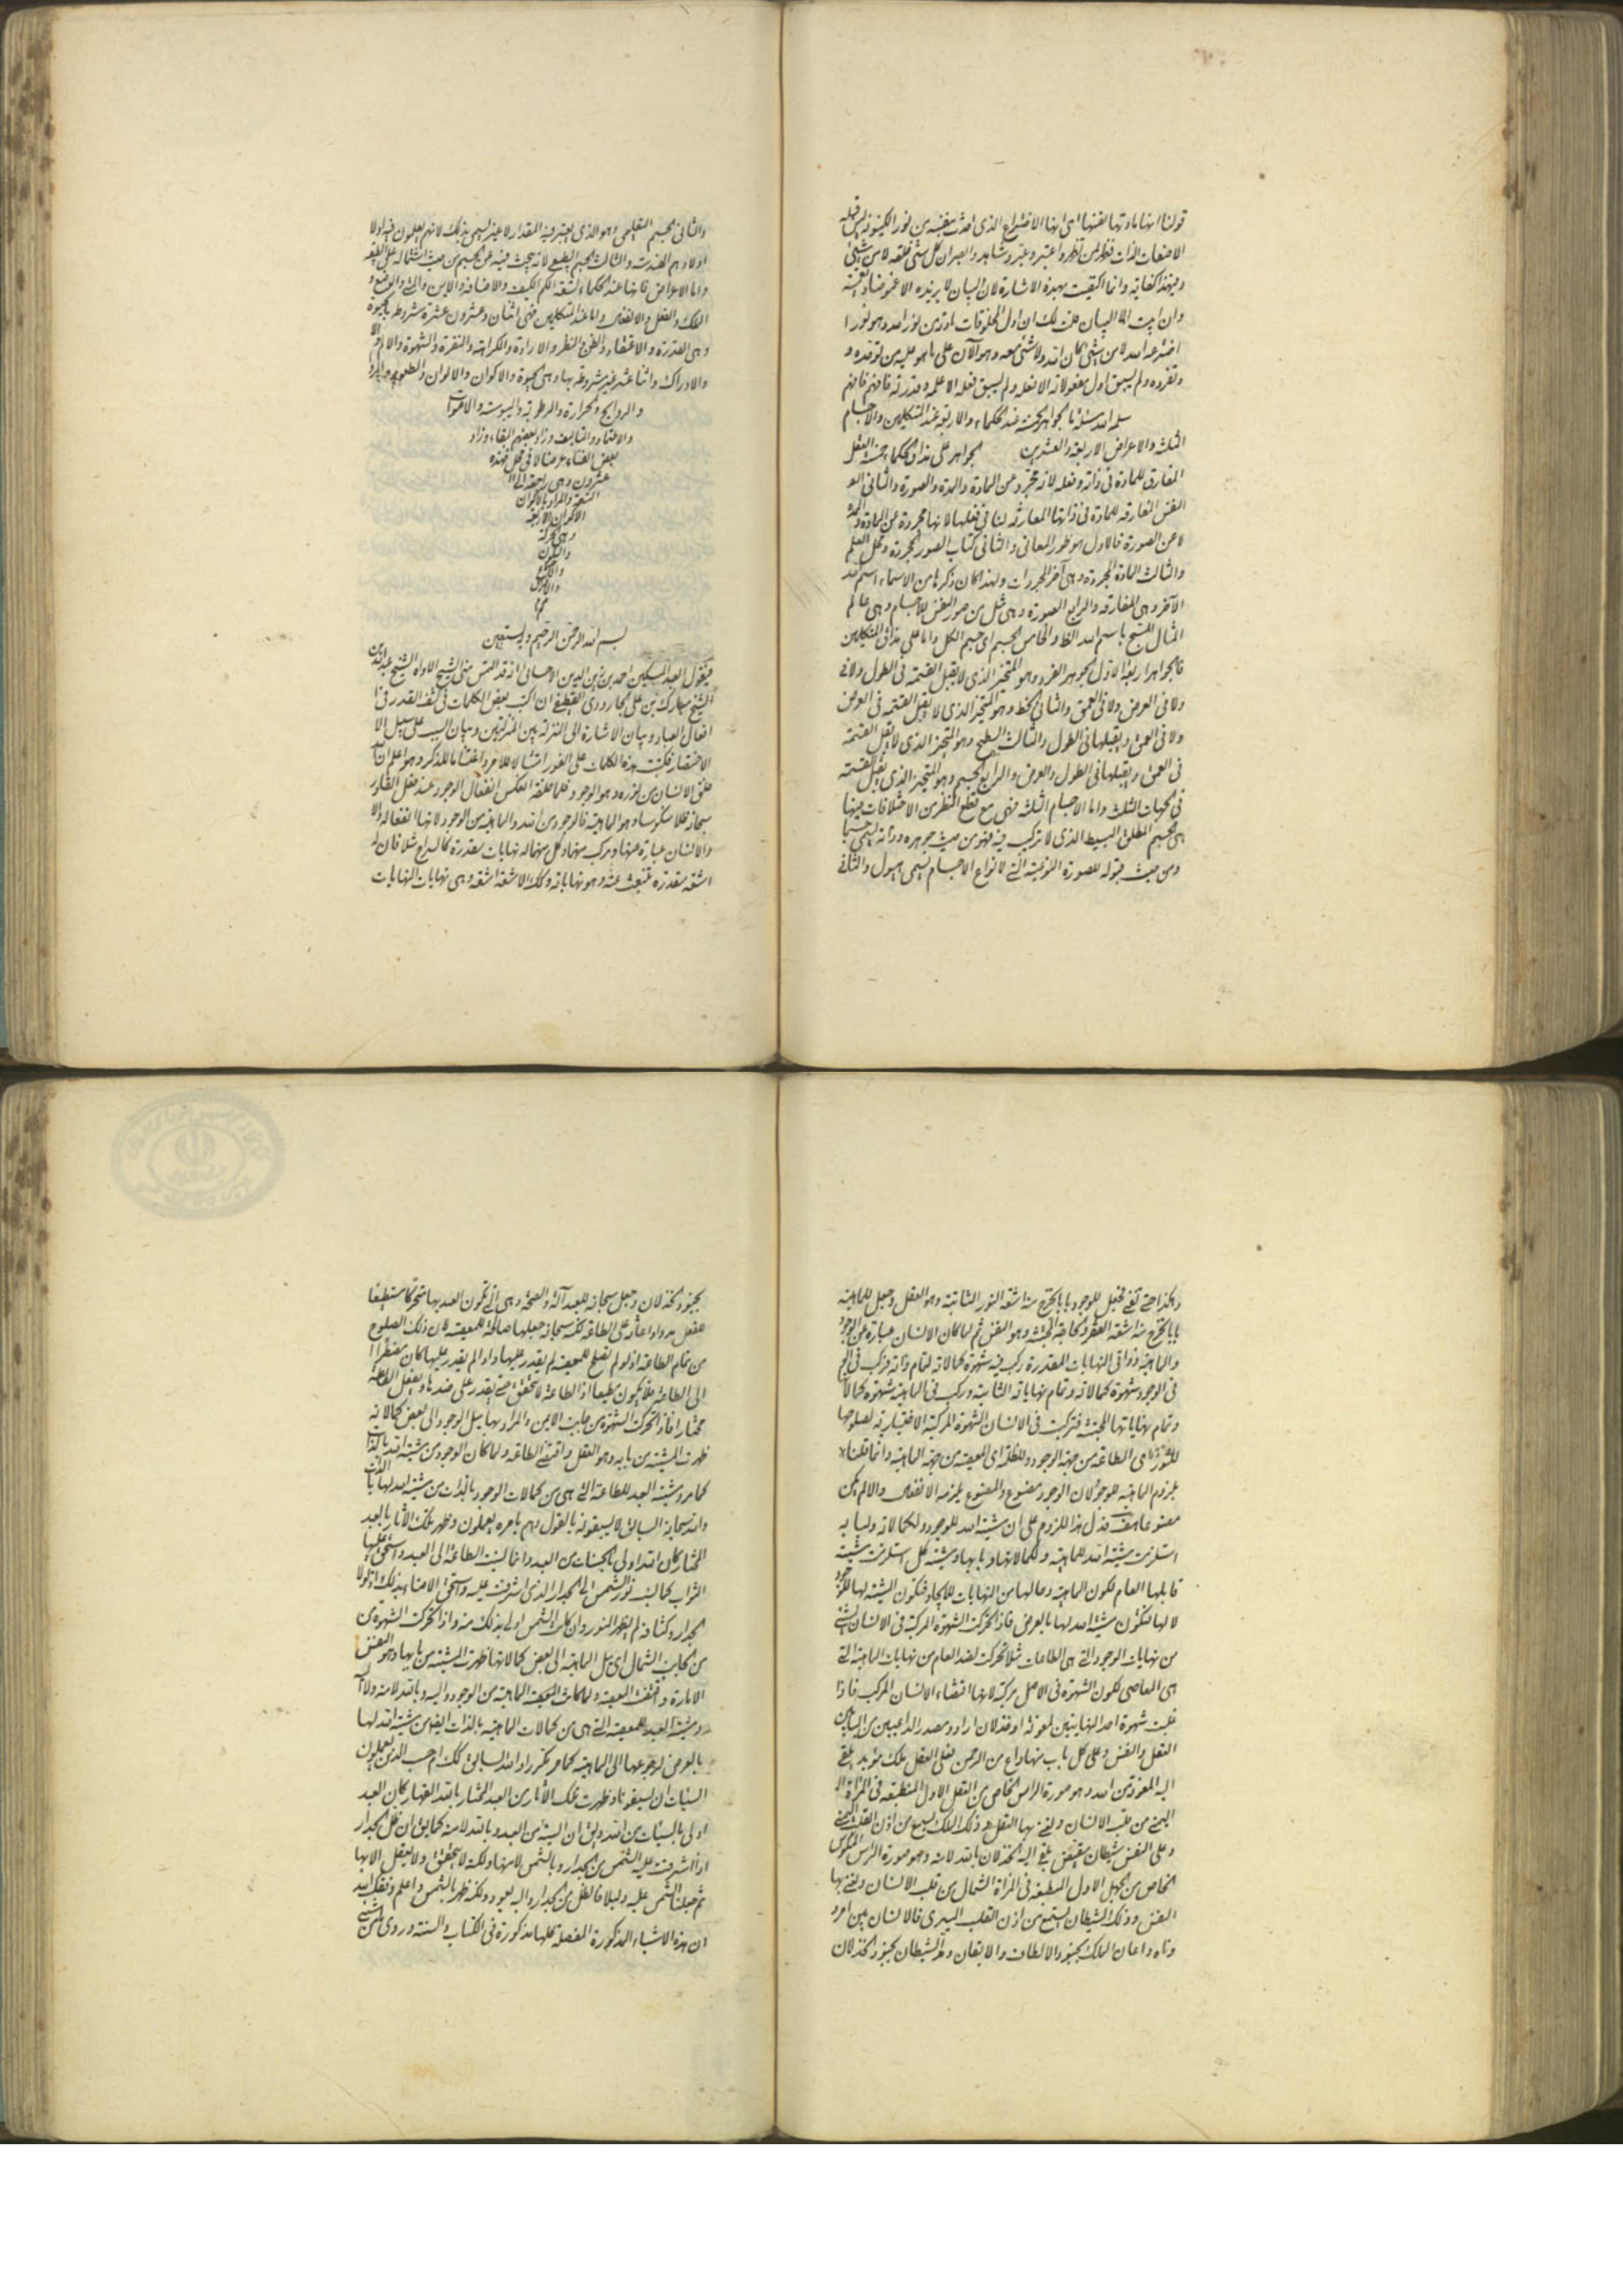 قولنا انها مادتها نفسها اى انها الاختراع الذى احدث بنفسه من نور الكينونة ليس قبله
الا صفات الذات فنظر من نظر واعتبر وشاهد وابصر ان كل شئ خلقه لا من شئ
وبهذا كفاية وانما اكتفيت بهذه الاشارة لان البيان لا يزيده الا غموضا
وان ابيت الا البيان قلت لك ان اول المخلوقات مادته من نور الله وهو نور ا
اخترعه الله لا من شئ كان الله ولا شئ معه وهو الآن على ما هو عليه من توحده و
وتفرده ولم يسبق اول مفعولاته الا فعله ولم يسبق فعله الا علمه وقدرته فافهم فافهم
سلمه الله مسئلة ما الجواهر الخمسة عند الحكماء والاربعة عند المتكلمين والاجسام
الثلثة والاعراض الاربعة والعشرين الجواهر على مذاق الحكماء خمسة العقل
المفارق للمادة فى ذاته وفعله لانه مجرد عن المادة والمدة والصورة والثانى
النفس المفارقه للمادة فى ذاتها المقارنة لها فى فعلها لانها مجردة عن المادة والمدة
لا عن الصورة فالاول هو طور المعانى والثانى كتاب الصور المجردة ومحل العلم
والثالث المادة المجردة وهى آخر المجردات ولهذا كان ذكرها من الاسماء اسم الله
الآخر وهى المفارقه والرابع الصورة وهى مثل من صور النفس للاجسام وهى عالم
المثال المسبح باسم الله والخامس الجسم اى جسم الكل واما على مذاق المتكلمين
فالجواهر اربعة الاول الجوهر الفرد وهو المتحيز الذى لا يقبل القسمة فى الطول ولا فى
ولا فى العرض ولا فى العمق والثانى الخط وهو المتحيز الذى لا يقبل القسمه فى العرض
ولا فى العمق ويقبلها فى الطول والثالث السطح وهو المتحيز الذى لا يقبل القسمة
فى العمق ويقبلها فى الطول والعرض والرابع الجسم وهو المتحيز الذى يقبل القسمه
فى الجهات الثلث واما الاجسام الثلثة فهى مع قطع النظر من الاختلافات بينها
هى الجسم المطلق البسيط الذى لا تركيب فيه فهو من حيث جوهره وذاته يسمى جسما
ومن حيث قبوله للصورة النوعية التى لانواع الاجسام يسمى هيولى والثانى
والثانى الجسم التعليمى وهو الذى يعتبر فيه المقدار لا غير ليسمى بذلك لانهم يعلمون فيه اولا
اولادهم الهندسة والثالث الجسم الطبيعى لانه يبحث فيه عن الجسم من حيث اشتماله على الطبيعة
واما الاعراض فانها عند الحكماء تسعة الكم والكيف والاضافة والاين والمتى والوضع و
الملك والفعل والانفعال واما عند المتكلمين فهى اثنان وعشرون عشرة مشروطة بالحيوة
وهى القدرة والاعتقاد والظن والنظر والارادة والكراهة والنفرة والشهوة والالم و
والادراك واثنا عشر غير مشروطة بها وهى الحيوة والاكوان والالوان والطعوم
والروايح والحرارة والرطوبة واليبوسة والاصوات
والاعتماد والتأليف وزاد بعضهم البقاء وزاد
بعض الفناء عرضا لا فى محل فهذه
عشرون وهى راجعة الى
التسعة والمراد بالاكوان
الاكوان الاربعة
وهى الحركة
والسكون
والاجتماع
والافتراق
بسم الله الرحمن الرحيم وبه نستعين
فيقول العبد المسكين احمد بن زين الدين الاحسائى انه قد التمس منى الشيخ الاواه الشيخ عبد الله بن
الشيخ مبارك بن على الجارودى القطيفى ان اكتب بعض الكلمات فى كشف القدر فى
افعال العباد وبيان الاشارة الى المنزلة بين المنزلتين وبيان السبب على سبيل الا
الاختصار فكتبت هذه الكلمات على الفور امتثالا للامر واغتناما للذكر وهو اعلم ان الله
خلق الانسان من نوره وهو الوجود فلما خلقه انعكس انفعال الوجود عند فعل القادر
سبحانه ظلا منكوسا وهو الماهية فالوجود من الله والماهية من الوجود لانها انفعاله
والانسان عبارة عنهما ومركب منهما ولكل منهما له نهايات مقدرة كالسراج مثلا فان له
اشعة مقدرة تنبعث عنه وهو نهاياته ولتلك الاشعة اشعة وهى نهايات النهايات
وهكذا حتى تفنى فجعل للوجود بابا يخرج منه اشعة النور الثابتة وهو العقل وجعل للماهية
بابا يخرج منه اشعة المجتثة وهو النفس ثم لما كان الانسان عبارة عن الوجود
والماهية وذواتى النهايات المقدرة ركب فيه شهوة كمالاته لتمام ذاته فركب
فى الوجود شهوة كمالاته وتمام نهاياته الثابتة وركب فى الماهية شهوة كمالاتها
وتمام نهاياتها المجتثة فتركبت فى الانسان الشهوة المركبة الاختيارية لصلوحها
للنور اى الطاعة من جهة الوجود وللظلمة اى المعصية من جهة الماهية وانما قلنا
بلزوم الماهية للوجود لان الوجود مصنوع والمصنوع يلزمه الانفعال والا لم يكن
مصنوعا فدل هذا اللزوم على ان مشية الله للوجود ولكمالاته ولبابه
استلزمت مشية الله للماهية ولكمالاتها ولبابها ومشية كل استلزمت مشية
قابلها العام لكون الماهية وما لها من النهايات للايجاد فتكون المشية لها للوجود
لا لها فتكون مشية الله لها بالعرض فاذا تحركت الشهوة المركبة فى الانسان لشئ
من نهايات الوجود التى هى الطاعات مثلا تحركت لضد العام من نهايات الماهية التى
هى المعاصى لكون الشهوة فى الاصل مركبة لانها اقتضاء الانسان المركب فاذا
غلبت شهوة احد النهايتين لمعونة او خذلان اراد ومصدر الداعيين من البابين
العقل والنفس وعلى كل باب منهما داع من الرحمن فعلى العقل ملك مؤيد يلقى
اليه المعونة من الله وهو صورة الراس الخاص من العقل الاول المنطبعة فى المرآة
اليمنى من قلب الانسان ونعنى بها العقل وذلك الملك يسمع من اذن القلب اليمنى
وعلى النفس شيطان مقيض يلقى اليه الخذلان بالله لا منه وهو صورة الراس المنكوس
الخاص من الجهل الاول المنطبعة فى المرآة الشمال من قلب الانسان ونعنى بها
النفس وذلك الشيطان يستمع من اذن القلب اليسرى فالانسان بين امر و
وناه واعان الملك بجنود الالطاف والايقان والشيطان بجنود الخذلان
بجنود الخذلان وجعل سبحانه للعبد آلة والصحة وهى التى تكون العبد بها متحركا مستطيعا
للفعل على الطاعة لكنه سبحانه جعلها صالحة للمعصية لان ذلك الصلوح
من تمام الطاعة اذ لو لم تصلح للمعصية لم يقدر عليها واذا لم يقدر عليها كان مضطرا
الى الطاعة فلا يكون مطيعا اذ الطاعة لا تتحقق حتى يقدر على ضدها ويفعل الطاعة
مختارا فاذا تحركت الشهوة من جانب الايمن والمراد بها ميل الوجود الى بعض كمالاته
ظهرت المشية من بابه وهو العقل واقتضت الطاعة ولما كان الوجود من مشية الله بالذات
كما مر ومشية العبد للطاعة التى هى من كمالات الوجود بالذات من مشية الله لها بالذات
والله سبحانه السابق لا يسبقونه بالقول وهم بامره يعملون وظهر بتلك الآثار بالعبد
المختار كان الله اولى بالحسنات من العبد وانما نسبت الطاعة الى العبد واستحق عليها
الثواب كما نسب نور الشمس الى الجدار الذى اشرقت عليه واستحق الاضاءة بذلك
الجدار وكثافته لم يظهر النور وان كانت الشمس اولى بذلك منه واذا تحركت الشهوة من
من الجانب الشمال اى ميل الماهية الى بعض كمالاتها ظهرت المشية من بابها وهو النفس
الامارة واقتضت المعصية ولما كانت الماهية من الوجود واليه وبالله لا منه ولا
ومشية العبد للمعصية التى هى من كمالات الماهية بالذات ايضا من مشية الله لها
بالعرض لرجوعها الى الماهية كما مر مكررا والله السابق لذلك ام حسب الذين يعملون
السيئات ان يسبقونا وظهرت تلك الآثار من العبد المختار بالله القهار كان العبد
اولى بالسيئات من الله ويقال ان السيئة من العبد وبالله لا منه كما يقال ان ظل الجدار
اذا اشرقت عليه الشمس من الجدار وبالشمس لا منها ولكنه لا يتحقق ولا يعقل الا بها
ثم جعلنا الشمس عليه دليلا فالظل من الجدار واليه يعود ولكنه ظهر بالشمس واعلم وفقك الله
ان هذه الاشياء المذكورة المفصلة كلها مذكورة فى الكتاب والسنة وروى